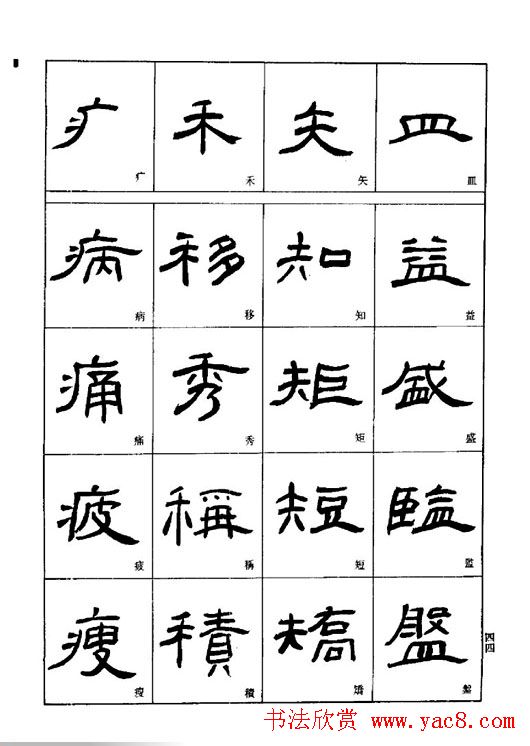 皿益盛監盤
皿益盛監盤
矢知矩短矯
矢知矩短矯
禾移秀稱積
禾移秀稱積
疒病痛疲瘦
疒病痛疲瘦
四四
书法欣赏 www.yac8.com